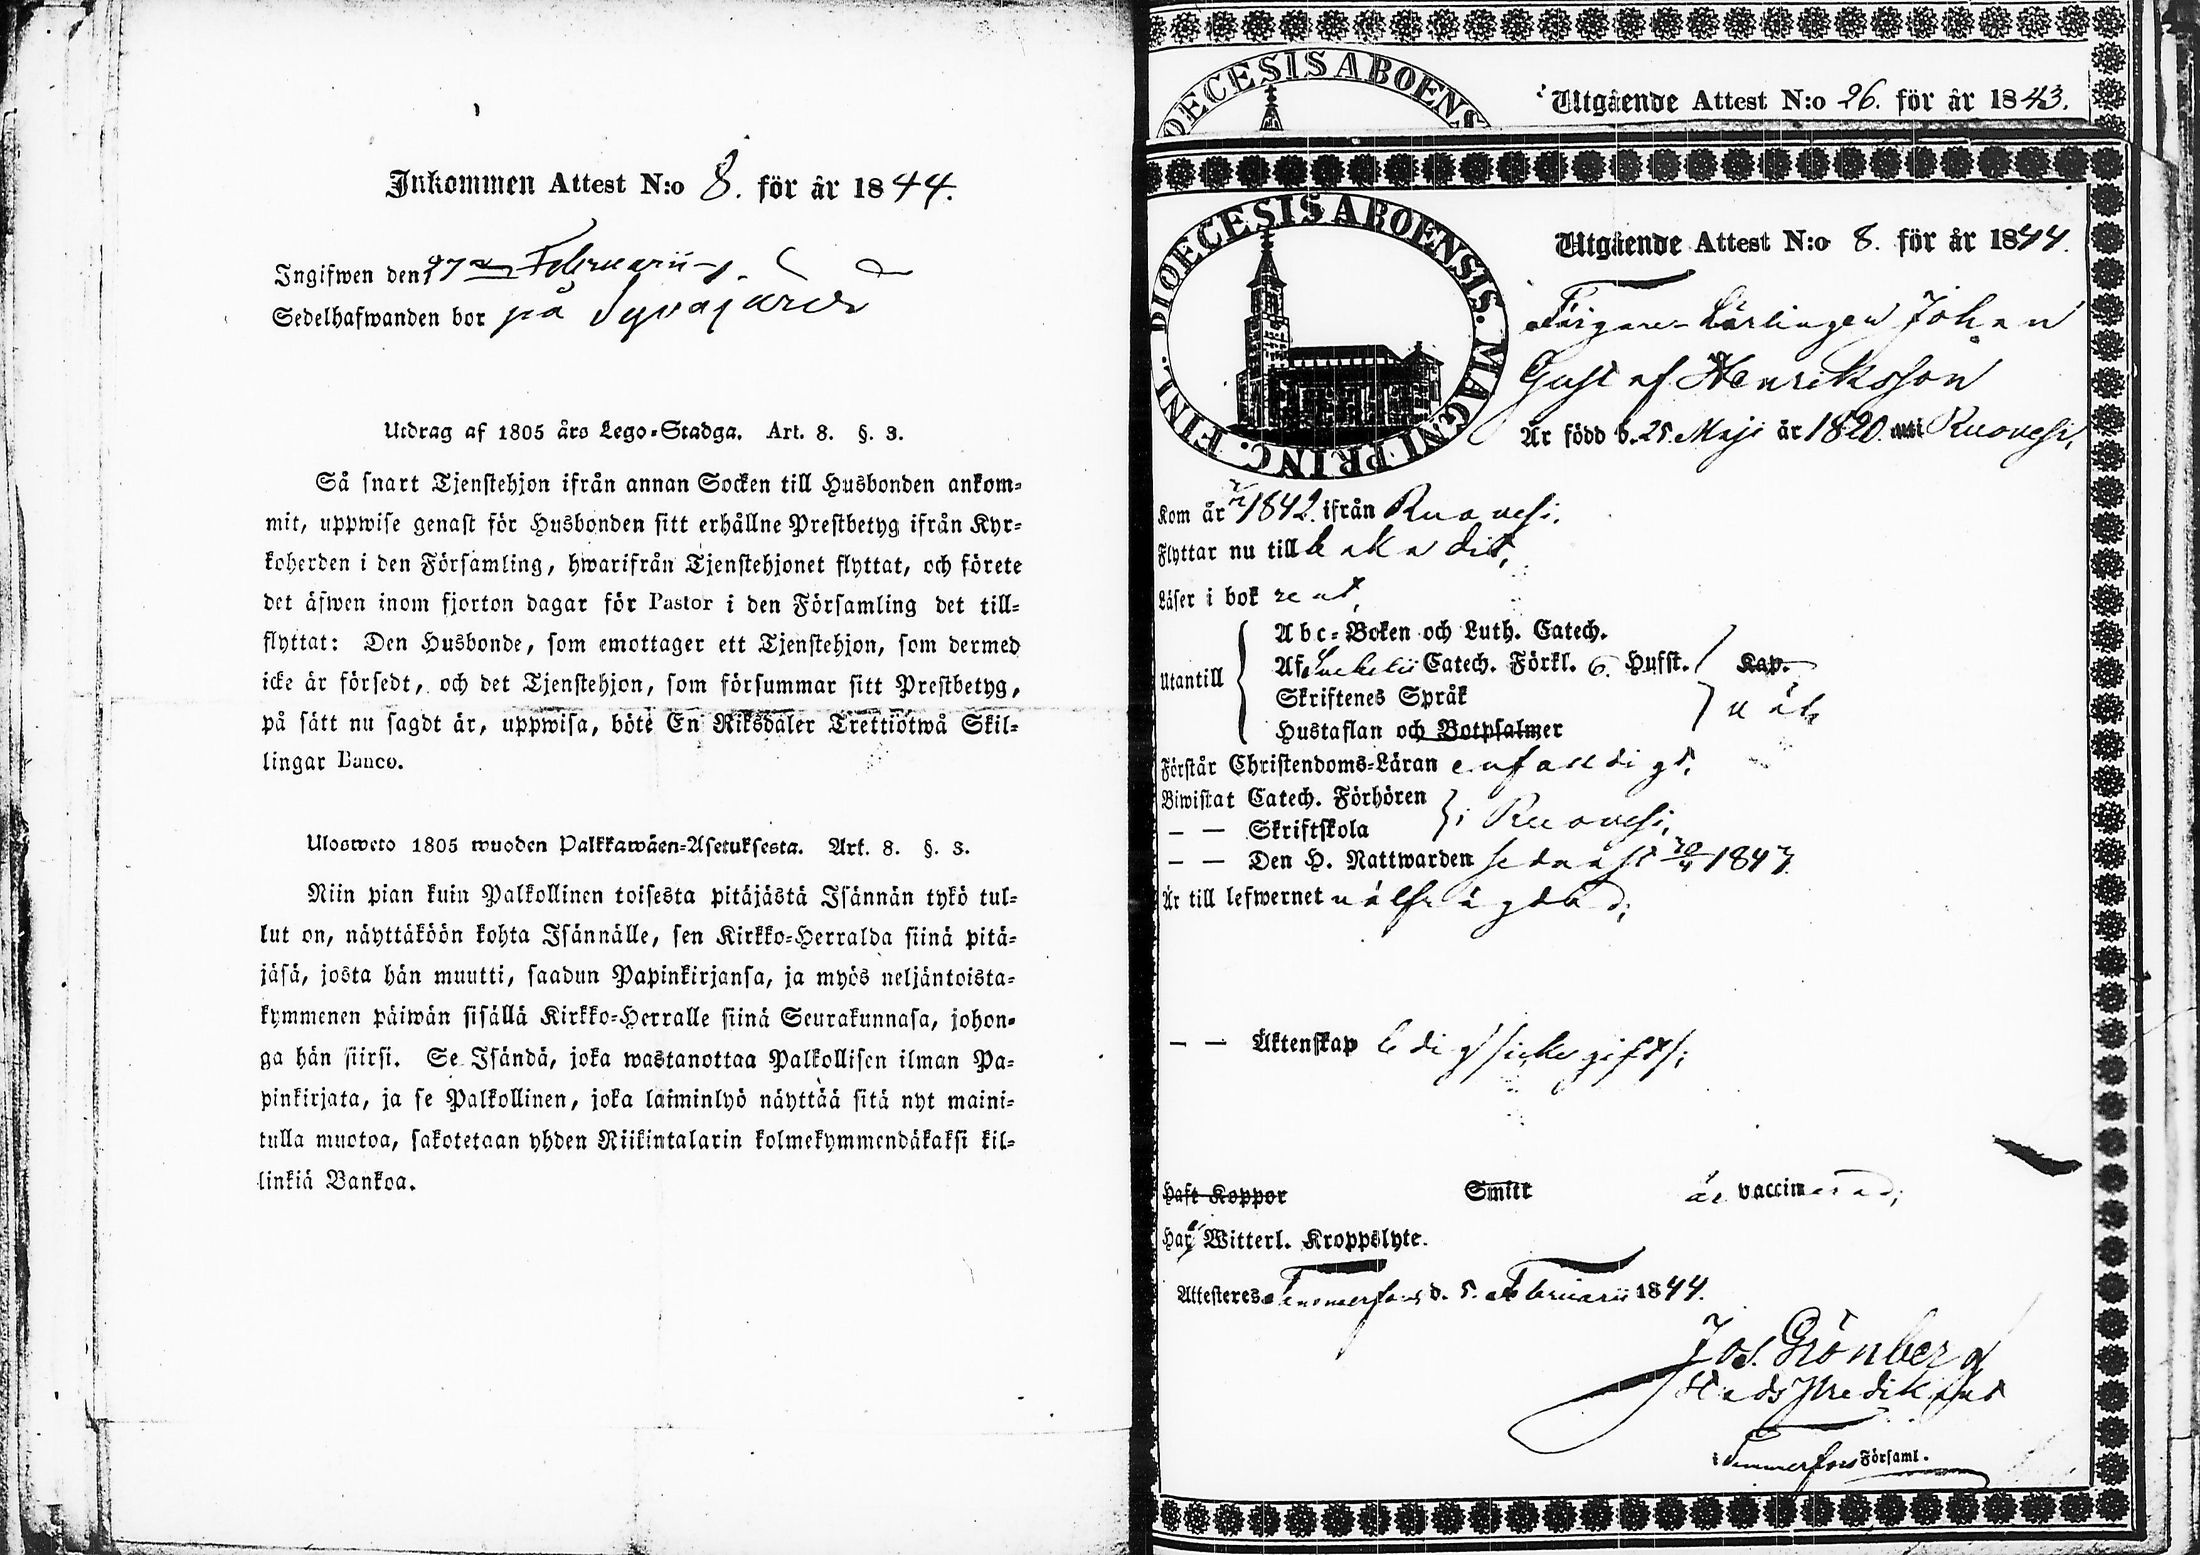 Inkommen Attest N:o 8. för år 1844.
Ingifwen den 27 Februarii
Sedelhafwanden bor på
Utdrag af 1805 års Lego-Stadga. Art. 8. §. 3.
Så snart Tjenstehjon ifrån annan Socken till Husbonden ankom-
mit, uppwise genast för Husbonden sitt erhållne Prestbetyg ifrån Kyr-
koherden i den Församling, hwarifrån Tjenstehjonet flyttat, och förete
det äfwen inom fjorton dagar för Pastor i den Församling det till-
flyttat: Den Husbonde, som emottager ett Tjenstehjon, som dermed
icke är försedt, och det Tjenstehjon, som försummar sitt Prestbetyg,
på sätt nu sagdt är, uppwisa, böte En Riksdaler Trettiotwå Skil-
lingar Banco.
Ulosweto 1805 wuoden Palkkawäen-Asetuksesta. Art. 8. §. 3.
Niin pian kuin Palkollinen toisesta pitäjästä Isännän tykö tul-
lut on, näyttäköön kohta Isännälle, sen Kirkko-Herralda siinä pitä-
jäsä, josta hän muutti, saadun Papinkirjansa, ja myös neljäntoista-
kymmenen päiwän sisällä Kirkko-Herralle siinä Seurakunnasa, johon-
ga hän siirsi. Se Isändä, joka wastanottaa Palkollisen ilman Pa-
pinkirjata, ja se Palkollinen, joka laiminlyö näyttää sitä nyt maini-
tulla muotoa, sakotetaan yhden Riikintalarin kolmekymmendäkaksi kil-
linkiä Bankoa.
DIOECESIS ABOENS
Utgående Attest N:o 26. för år 1843.
DIOECESIS ABOENSIS. MAGNI PRINC. FINL.
Utgående Attest N:o 8. för år 1844.
Färgare Lärlingen Johan
Gustaf Henriksson
Är född d. 25 Maji år 1820. i Ruovesi,
Kom år 1842. ifrån Ruovesi.
Flyttar nu till baka dit,
Läser i bok rent,
Utantill
Abc-Boken och Luth. Catech.
Af Catech. Förkl. 6. Hufst. Kap.
Skriftenes Språk
Hustaflan och Botpsalmer
nöjt
Förstår Christendoms-Läran enfaldigt.
Biwistat Catech. Förhören
— — Skriftskola i Ruovesi,
— — Den H. Nattwarden sednast 1843.
Är till lefwernet
— — Äktenskap ledig
Haft Koppor Smitt är vaccinerad;
Har ej Witterl. Kroppslyte.
Attesteres Tammerfors d. 5. Februarii 1844.
Jos. Grönberg
Stadspredikant
i Tammerfors Församl.